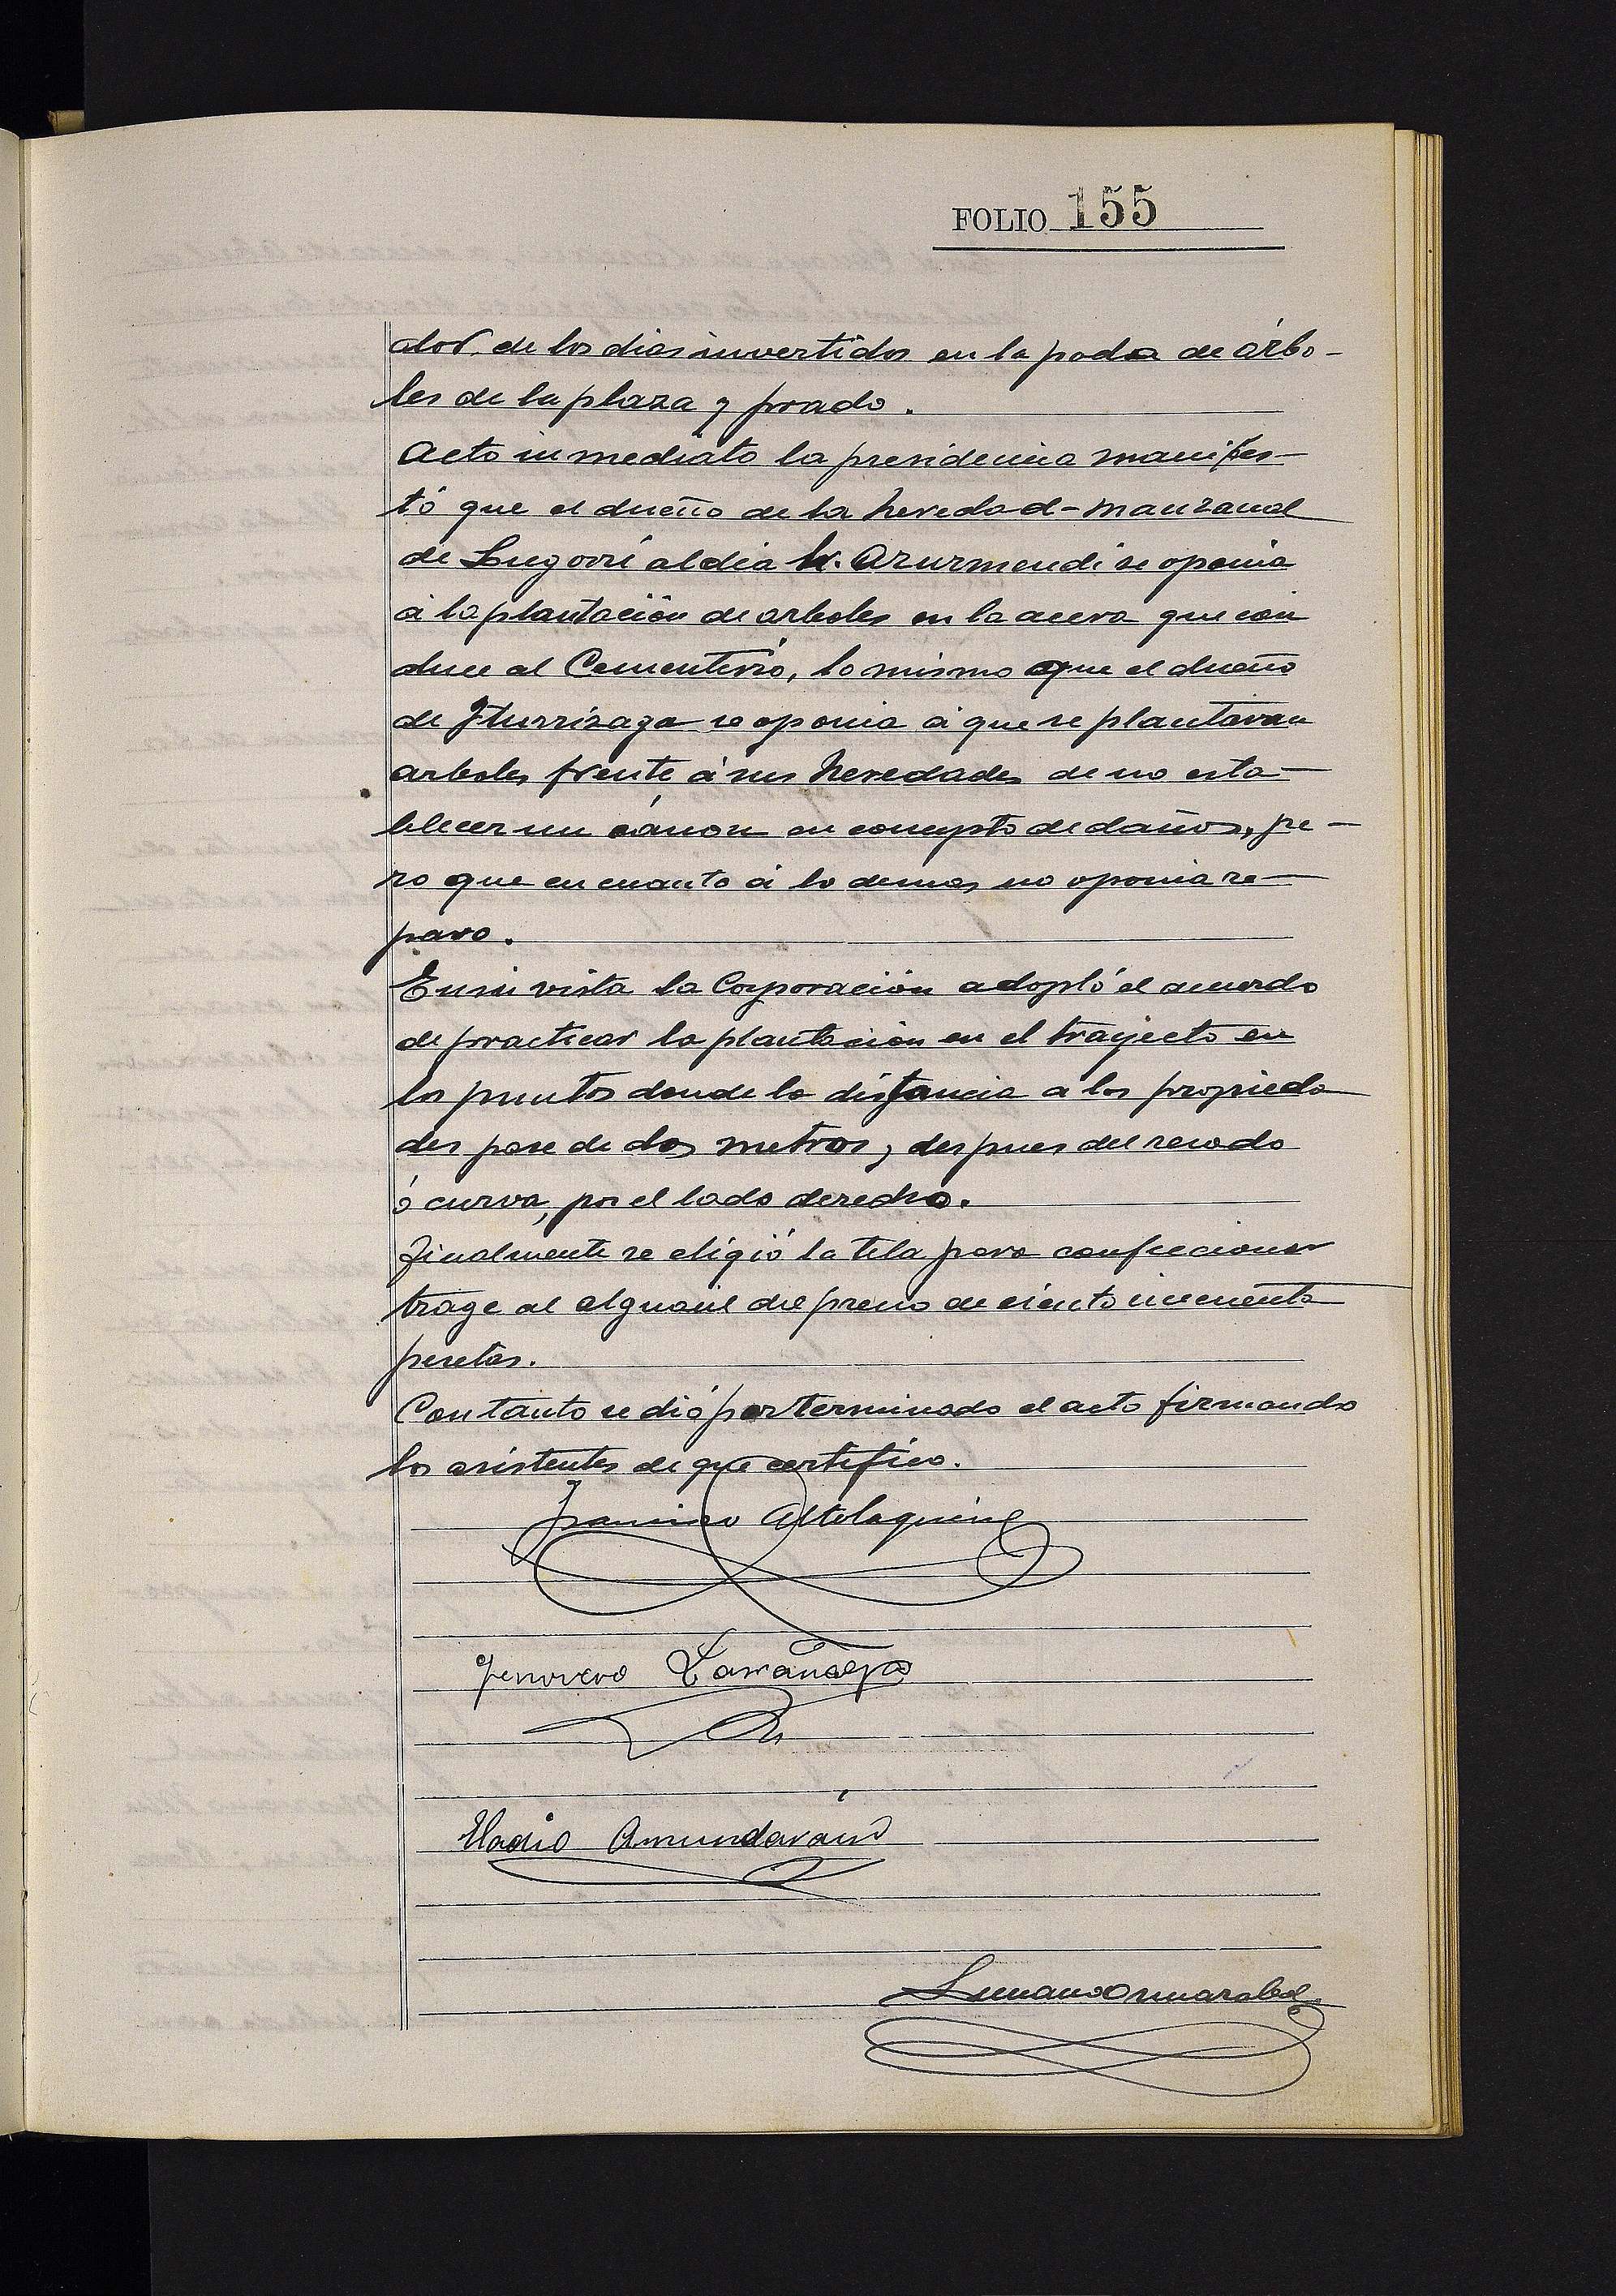 FOLIO 155
dor, de los dias invertidos en la poda de árbo-
les de la plaza y prado.
Acto inmediato la presidencia manifes-
tó que el dueño de la heredad-manzanal
de Lugorri aldia Sr. Azurmendi se oponia
á la plantación de arboles en la acera que con
duce al Cementerio, lo mismo que el dueño
de Iturrizaga se oponia á que se plantaran
arboles frente á sus heredades de no esta-
blecer un cánon en concepto de daños, pe-
ro que en cuanto á lo demas no oponia re-
paro.
En su vista la Corporación adoptó el acuerdo
de practicar la plantación en el trayecto en
los puntos donde la distancia a los propieda
des pase de dos metros, despues del recodo
ó curva, por el lado derecho.
Finalmente se eligió la tela para confeccionar
trage al alguacil del precio de ciento cincuenta
pesetas.
Con tanto se dió por terminado el acto firmando
los asistentes de que certifico.
Francisco Altolaguirre
Genovevo Larrañaga
Eladio Amundarain
Luciano